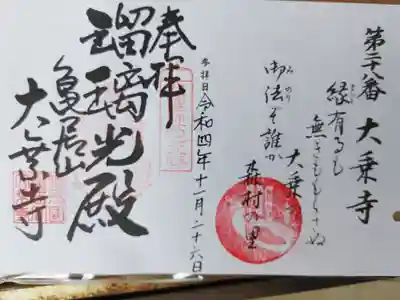 第二十八番 大乗寺
縁有るも
無きももらさぬ
大乗寺
御法は誰か
みのり
森村の里
参拝日 令和四年十一月二十六日
奉拝
瑠璃光殿
亀居山
大乗寺